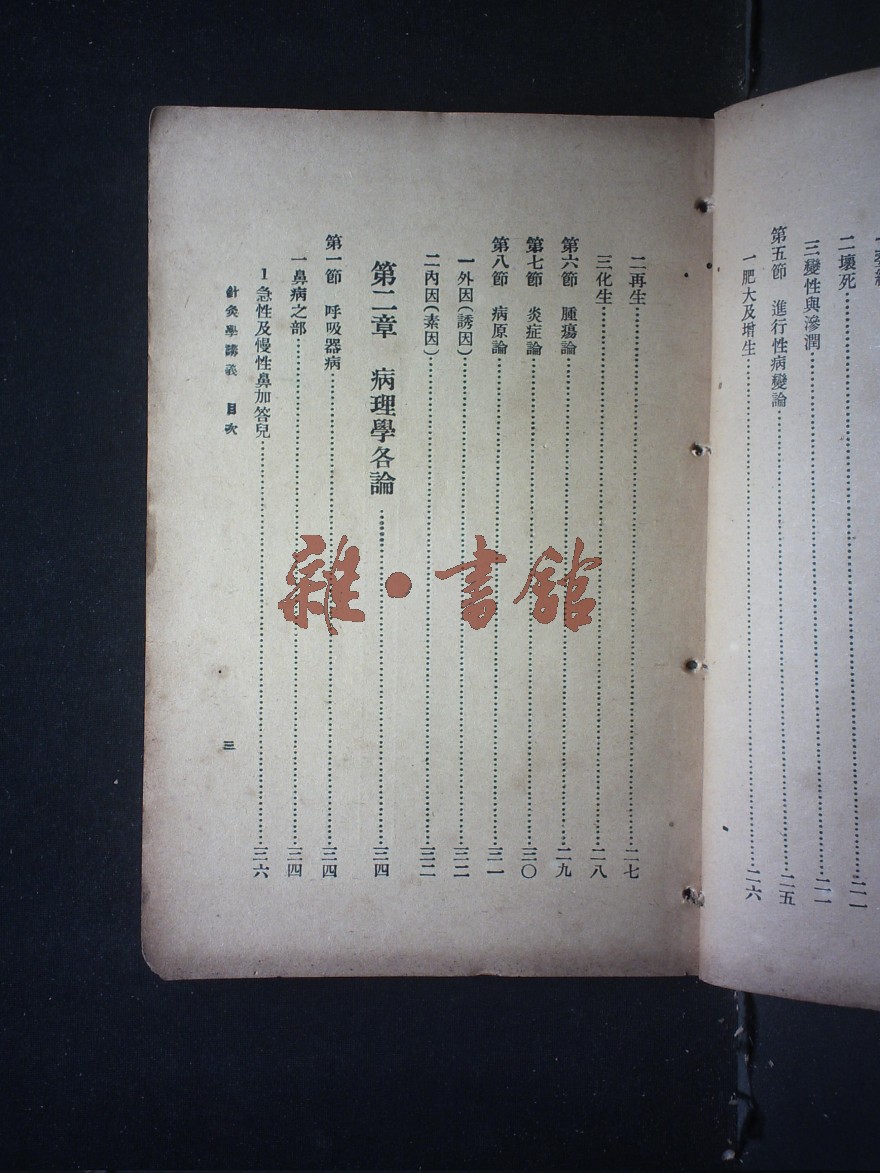 二壞死……二一
三變性與滲潤……二一
第五節 進行性病變論……二五
一肥大及增生……二六
二再生……二七
三化生……二八
第六節 腫瘍論……二九
第七節 炎症論……三〇
第八節 病原論……三一
一外因(誘因)……三二
二內因(素因)……三二
第二章 病理學各論……三四
第一節 呼吸器病……三四
一鼻病之部……三四
1急性及慢性鼻加答兒……三六
針灸學講義 目次 三
雜·書館